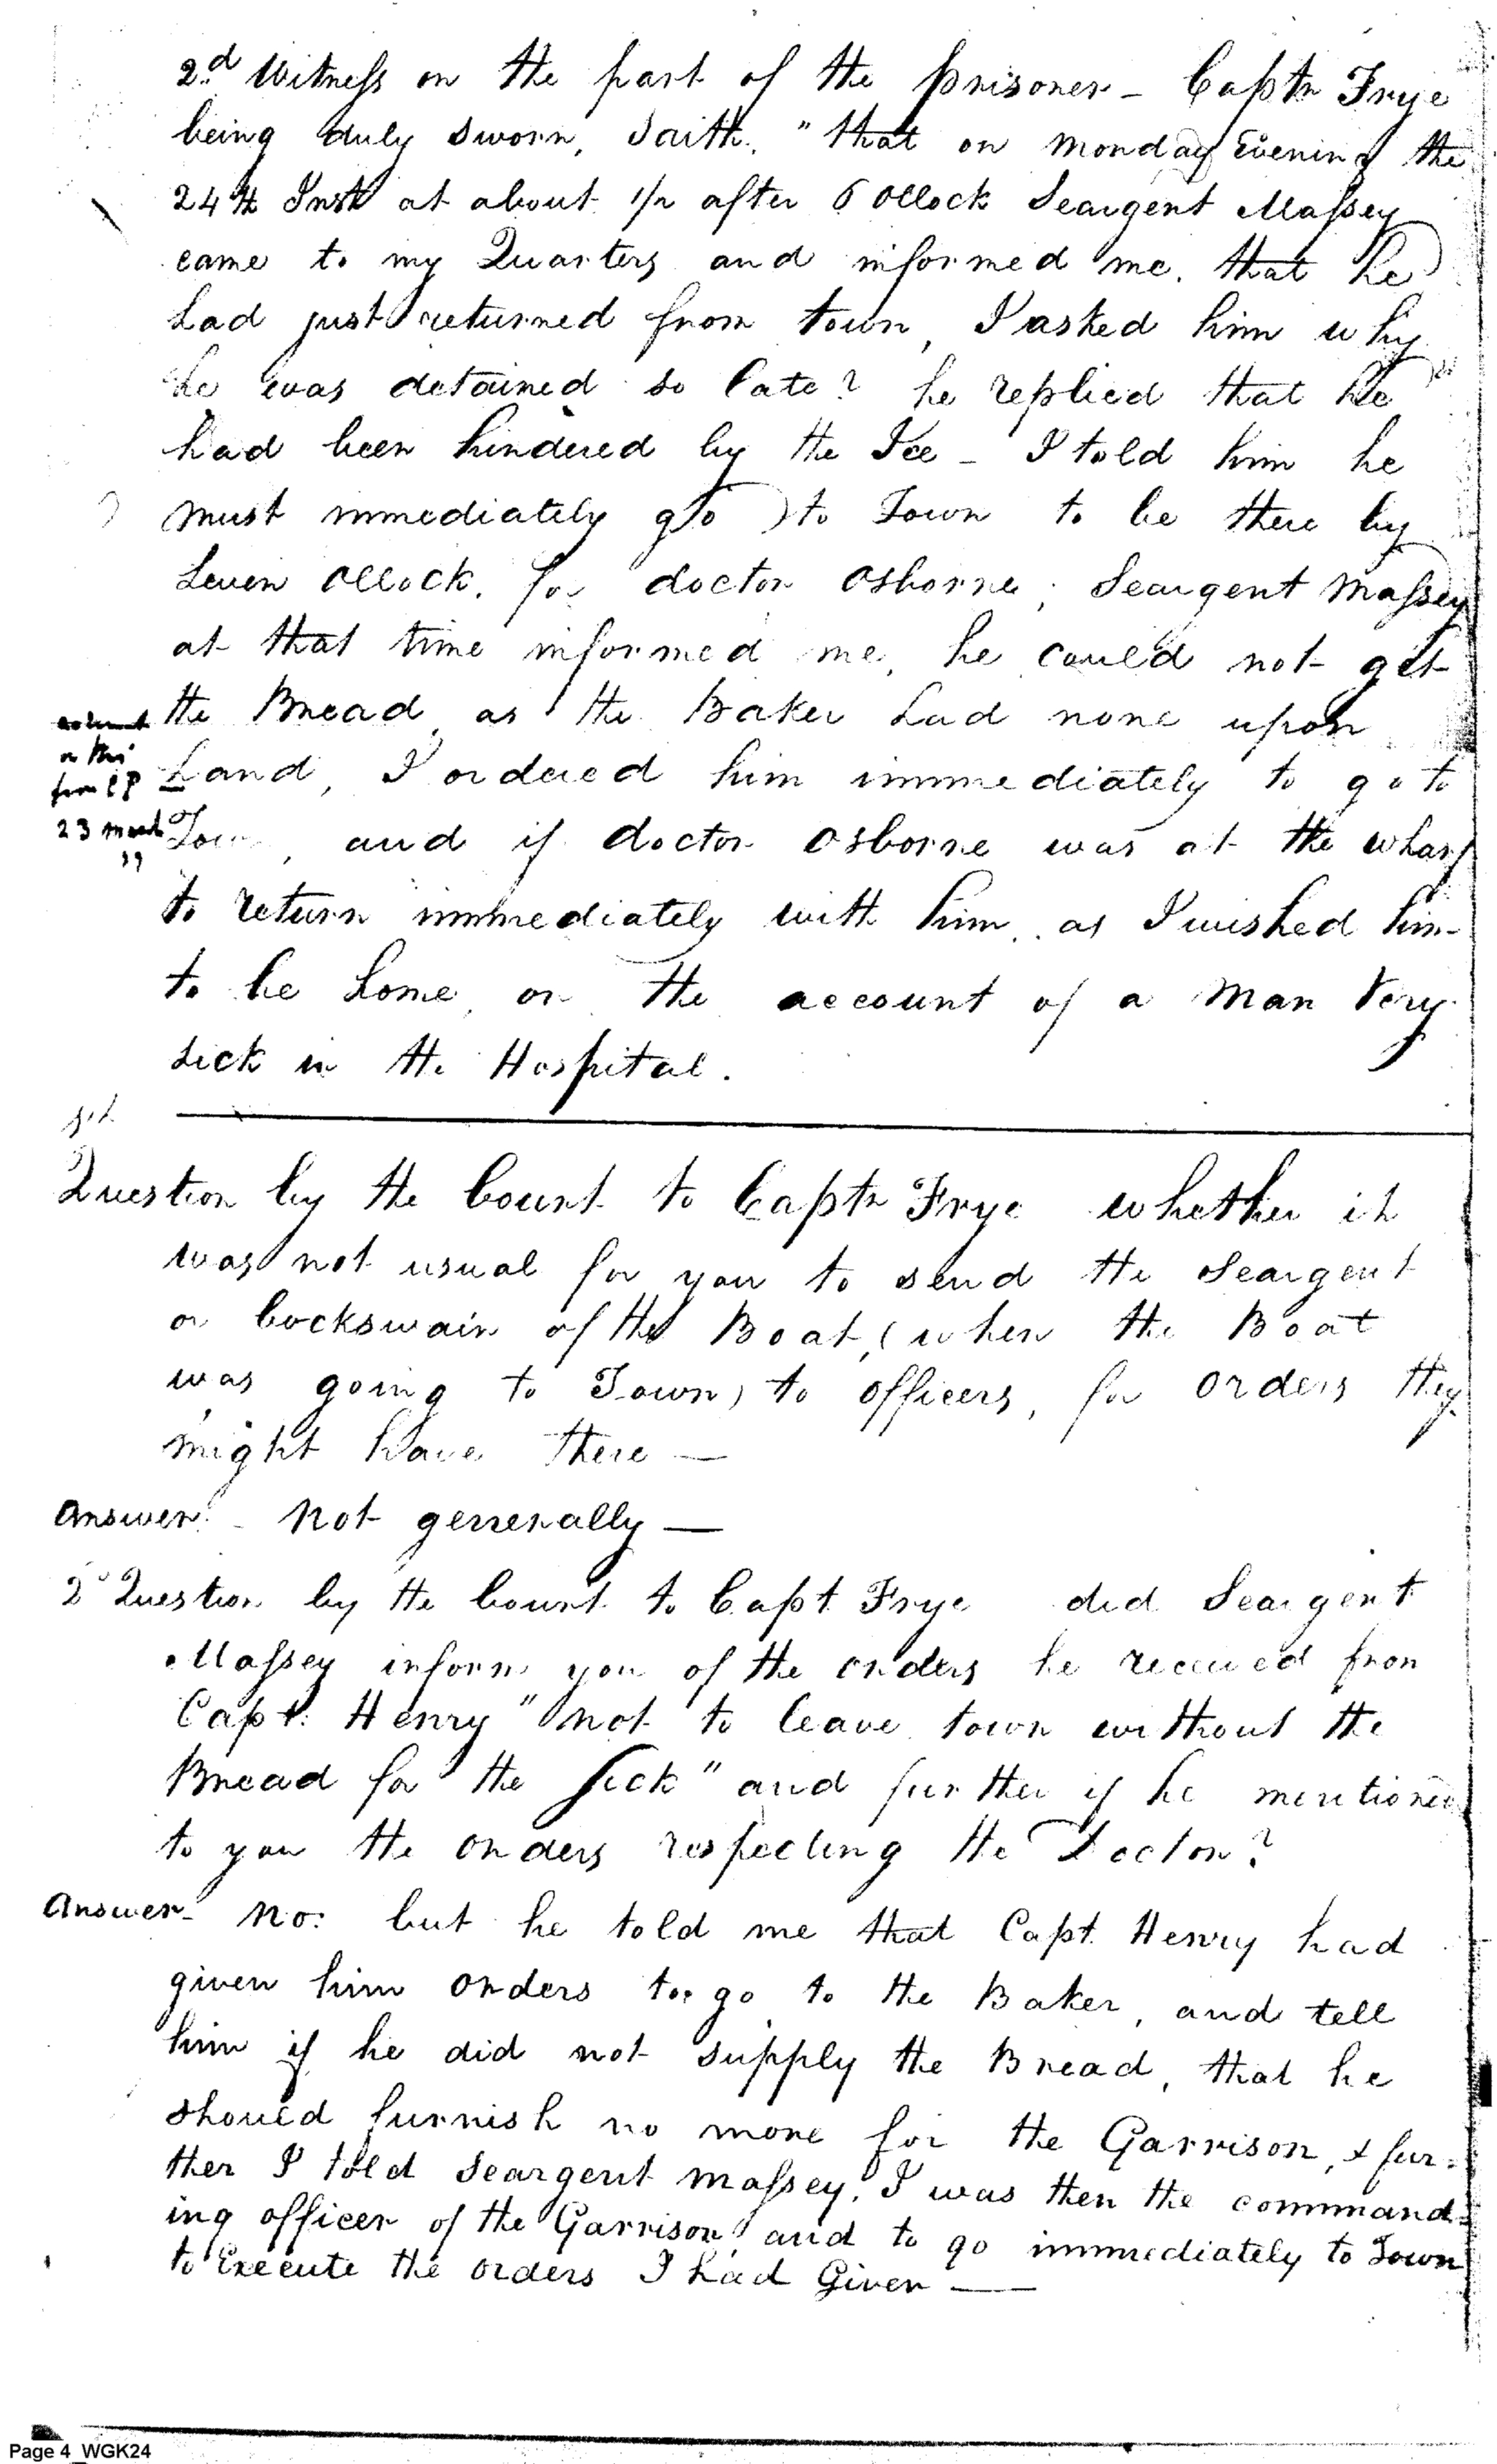 2.d Witness on the part of the prisoner - Captn Frye
being duly sworn, Saith, "that on Monday Evening the
24th Inst at about 1/2 after 6 oClock Seargent Massey
came to my Quarters and informed me, that he
had just returned from town, I asked him why
he was detained so late? he replied that he
had been hindered by the Ice - I told him he
must immediately go to Town to be there by
Seven oClock, for doctor Osborne, Seargent Massey
at that time informed me, he could not get
the Bread, as the Baker had none upon
hand, I ordered him immediately to go to
Town, and if doctor Osborne was at the wharf
to return immediately with him, as I wished him
to be home, on the account of a man very
sick in the Hospital.
on this
from CP
23 March
Question by the Court to Captn Frye whether it
was not usual for you to send the Seargent
or Cockswain of the Boat, (when the Boat
was going to Town) to officers, for orders they
might have there -
Answer - Not generally -
2d Question by the Court to Capt Frye did Seargent
Massey inform you of the orders he received from
Capt. Henry "not to leave town without the
Bread for the Sick" and further if he mentioned
to you the orders respecting the Doctor?
Answer - No: but he told me that Capt. Henry had
given him orders to go to the Baker, and tell
him if he did not supply the Bread, that he
should furnish no more for the Garrison, & fur-
ther I told Seargent Massey, I was then the command-
ing officer of the Garrison, and to go immediately to Town
to Execute the orders I had Given -
Page 4_WGK24